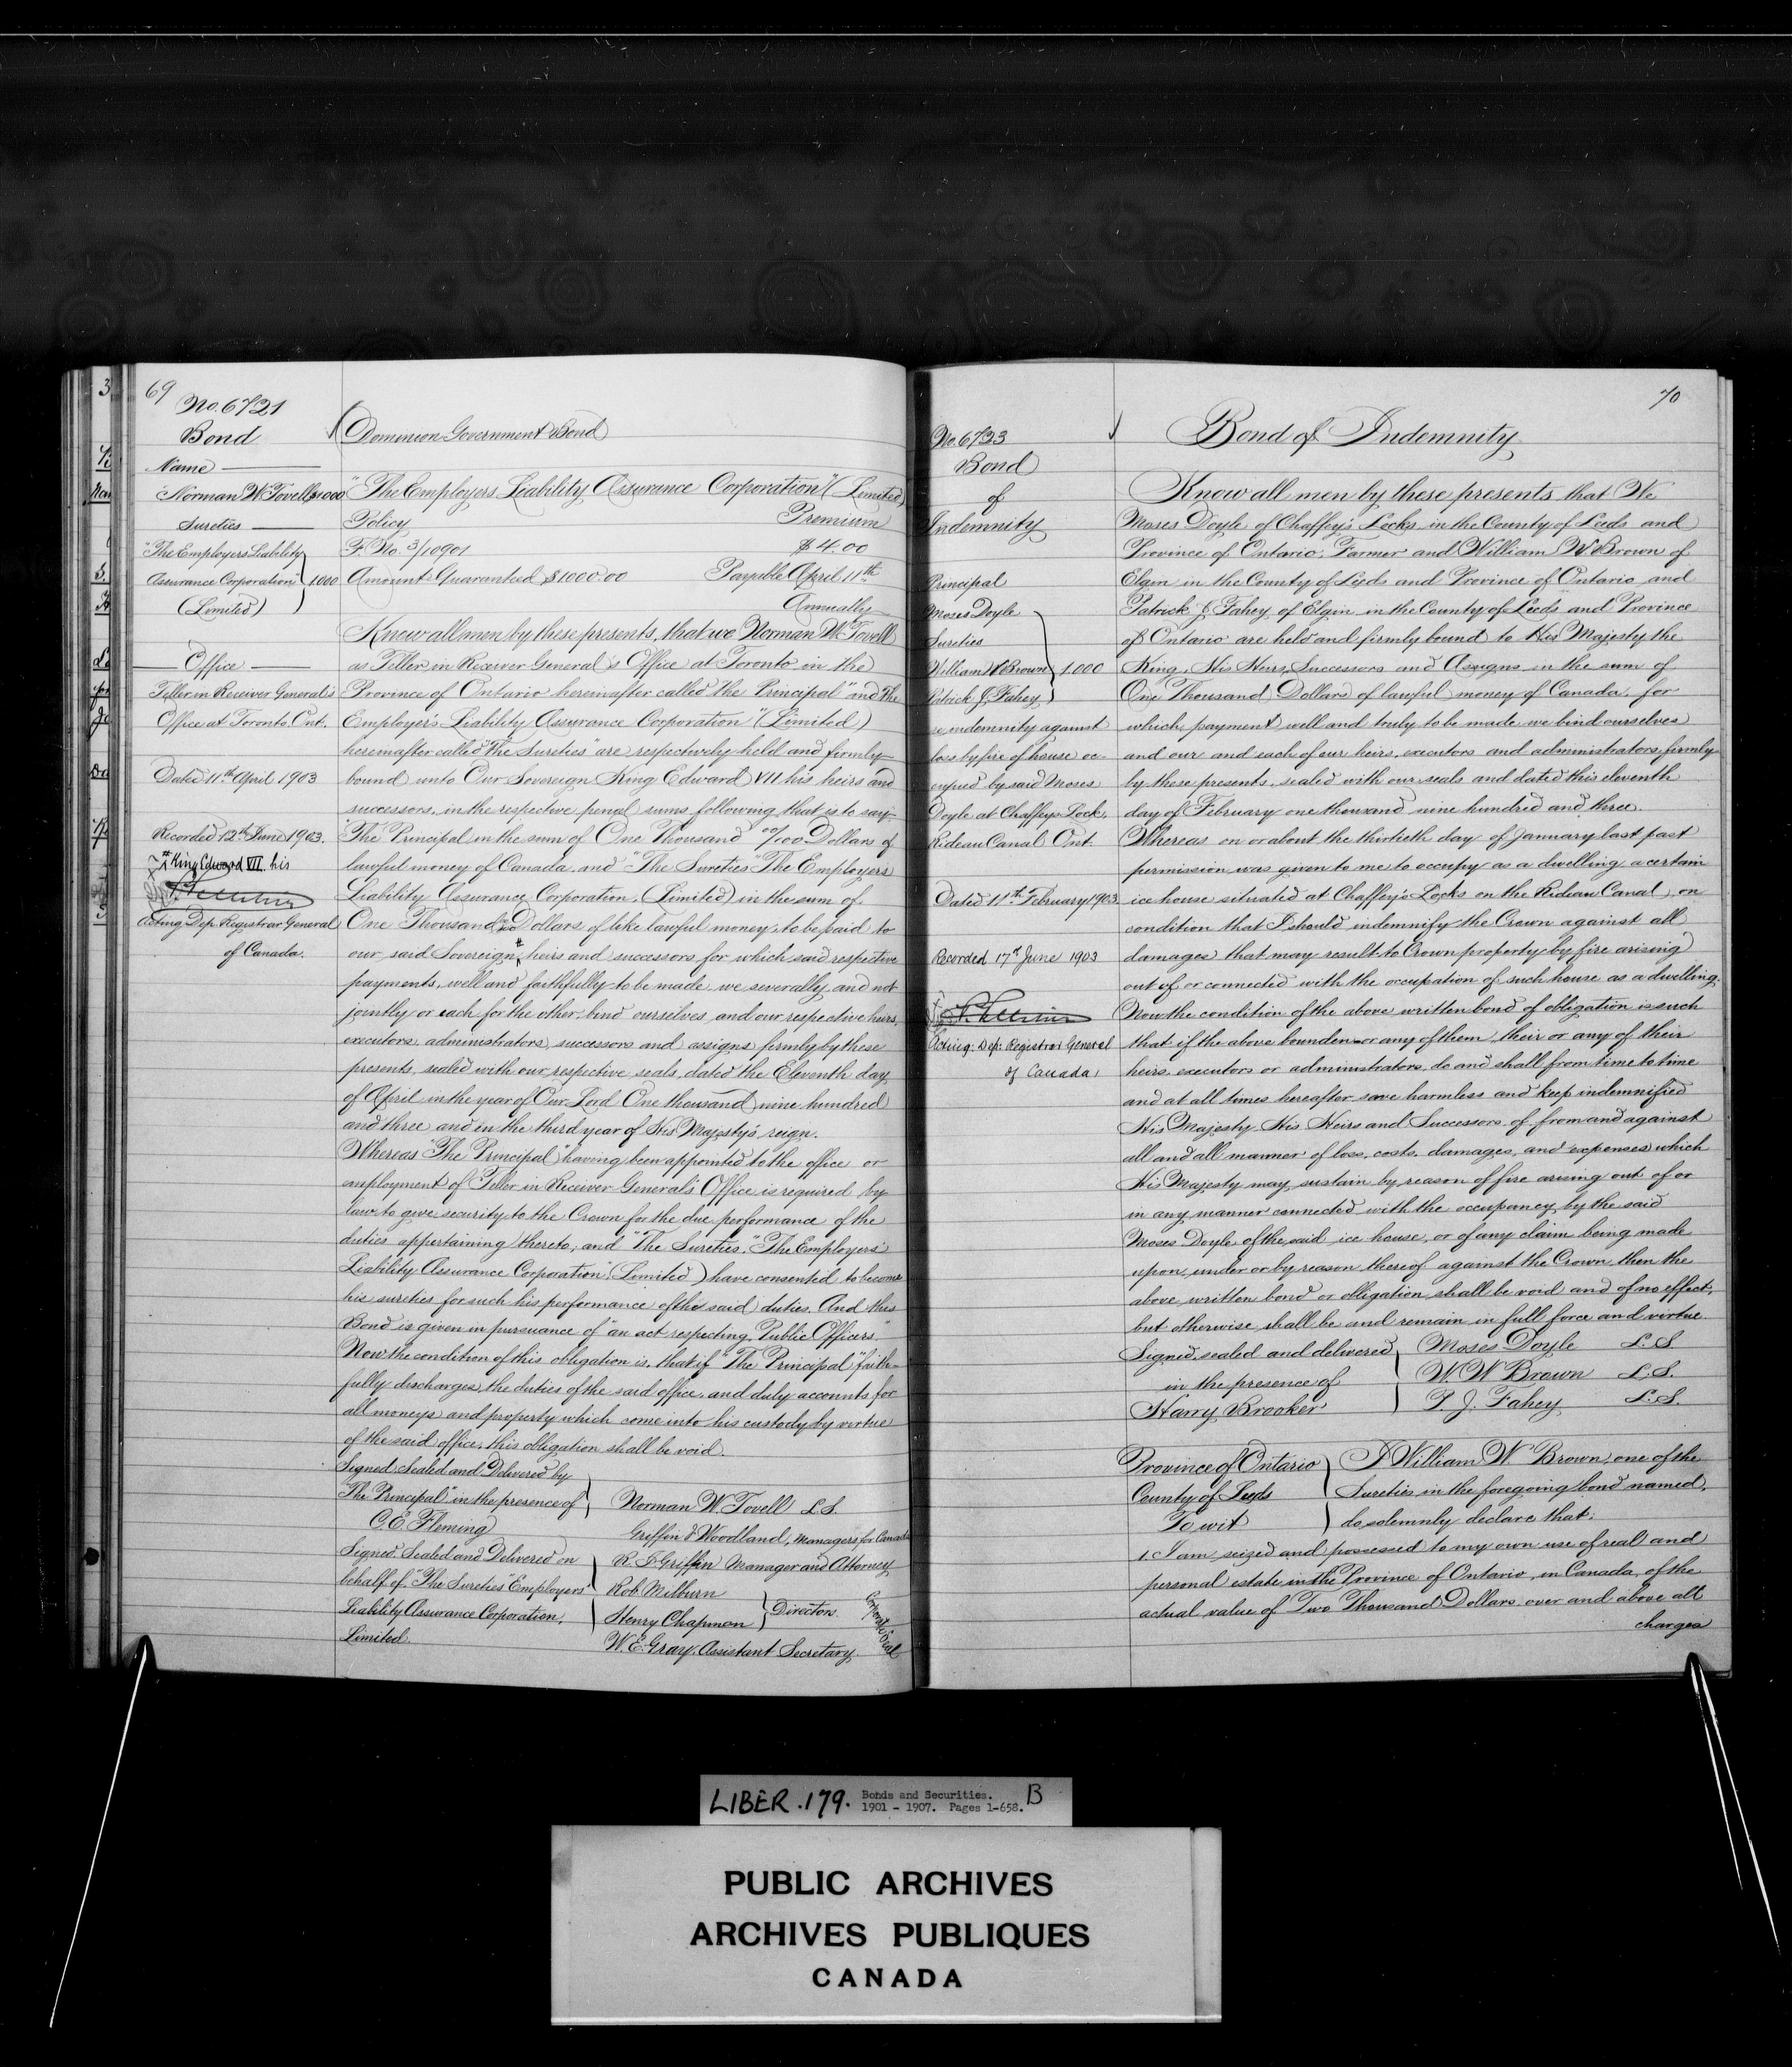 69
No. 6721
Bond
Name
Norman W. Tovell $1000
Sureties
"The Employers Liability
Assurance Corporation 1000
(Limited)
Office
Teller in Receiver General's
Office at Toronto Ont.
Dated 11th April 1903
Recorded 12th June 1903.
# King Edward VII his
Acting Dep. Registrar General
of Canada.
Dominion Government Bond
"The Employers Liability Assurance Corporation" (Limited)
Policy Premium
F. No. 3/10901 $4.00
Amount Guaranteed $1000.00 Payable April 11th
Annually
Know all men by these presents, that we Norman W. Tovell
as Teller in Receiver General's Office at Toronto in the
Province of Ontario hereinafter called the Principal" and "The
Employer's Liability Assurance Corporation" (Limited)
hereinafter called "The Sureties" are respectively held and firmly
bound unto Our Sovereign King Edward VII his heirs and
successors, in the respective penal sums following that is to say
"The Principal in the sum of One Thousand 00/100 Dollars of
lawful money of Canada, and "The Sureties" The Employers
Liability Assurance Corporation, (Limited) in the sum of
One Thousand 00/100 Dollars of like lawful money, to be paid to
our said Sovereign # heirs and successors for which said respective
payments, well and faithfully to be made we severally, and not
jointly or each for the other, bind ourselves and our respective heirs,
executors, administrators, successors and assigns firmly by these
presents, sealed with our respective seals, dated the Eleventh day
of April in the year of Our Lord One thousand nine hundred
and three and in the third year of His Majesty's reign.
Whereas "The Principal" having been appointed to the office or
employment of Teller in Receiver General's Office is required by
law to give security to the Crown for the due performance of the
duties appertaining thereto; and "The Sureties," "The Employers
Liability Assurance Corporation" (Limited) have consented to become
his sureties for such his performance of the said duties. And this
Bond is given in pursuance of "an act respecting Public Officers."
Now the condition of this obligation is, that if "The Principal" faith-
fully discharges the duties of the said office, and duly accounts for
all moneys and property which come into his custody by virtue
of the said office, this obligation shall be void.
Signed, Sealed and Delivered by
"The Principal" in the presence of Norman W. Tovell L.S.
C. E. Fleming Griffin & Woodland, Managers for Canada
Signed, Sealed and Delivered on R. F. Griffin Manager and Attorney
behalf of "The Sureties" Employers' Rob. Milburn
Liability Assurance Corporation, Henry Chapman Directors. Corporate Seal
Limited. W. E. Gray. Assistant Secretary.
70
No. 6723
Bond
of
Indemnity
Principal
Moses Doyle
Sureties
William W. Brown 1.000
Patrick J. Fahey
re indemnity against
loss by fire of house oc-
cupied by said Moses
Doyle at Chaffey's Lock,
Rideau Canal Ont.
Dated 11th February 1903
Recorded 17th June 1903
Acting. Dep. Registrar General
of Canada,
Bond of Indemnity
Know all men by these presents that We
Moses Doyle of Chaffey's Locks in the County of Leeds and
Province of Ontario, Farmer and William W Brown of
Elgin in the County of Leeds and Province of Ontario and
Patrick J. Fahey of Elgin in the County of Leeds and Province
of Ontario are held and firmly bound to His Majesty the
King, His Heirs, Successors and Assigns in the sum of
One Thousand Dollars of lawful money of Canada, for
which payment well and truly to be made we bind ourselves
and our and each of our heirs, executors and administrators firmly
by these presents, sealed with our seals and dated this eleventh
day of February one thousand nine hundred and three.
Whereas on or about the thirtieth day of January last past
permission was given to me to occupy as a dwelling a certain
ice house situated at Chaffey's Locks on the Rideau Canal, on
condition that I should indemnify the Crown against all
damages that may result to Crown property by fire arising
out of or connected with the occupation of such house as a dwelling.
Now the condition of the above written bond of obligation is such
that if the above bounden or any of them, their or any of their
heirs, executors or administrators, do and shall from time to time
and at all times hereafter save harmless and keep indemnified
His Majesty His Heirs and Successors of from and against
all and all manner of loss, costs, damages, and expenses which
His Majesty may sustain by reason of fire arising out of or
in any manner connected with the occupancy by the said
Moses Doyle of the said ice house, or of any claim being made
upon, under or by reason thereof against the Crown, then the
above written bond or obligation shall be void and of no effect;
but otherwise shall be and remain in full force and virtue.
Signed, sealed and delivered Moses Doyle L.S.
in the presence of W. W Brown L.S.
Harry Brooker P. J. Fahey L.S.
Province of Ontario I William W Brown, one of the
County of Leeds Sureties in the foregoing bond named,
To wit do solemnly declare that:
1. I am seized and possessed to my own use of real and
personal estate in the Province of Ontario, in Canada, of the
actual value of Two Thousand Dollars over and above all
charges
LIBER. 179. Bonds and Securities. B
1901 - 1907. Pages 1-658.
PUBLIC ARCHIVES
ARCHIVES PUBLIQUES
CANADA